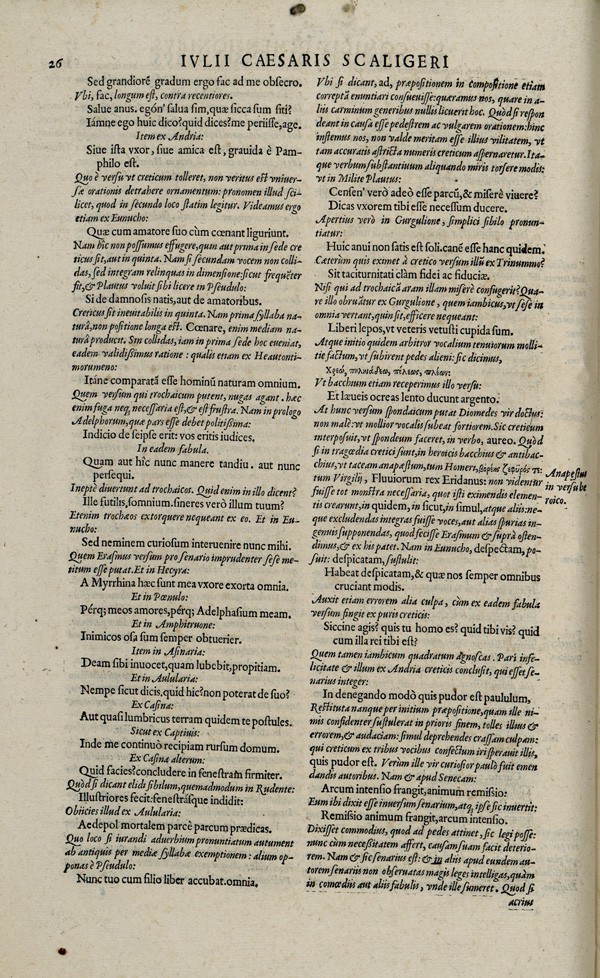 26
IVLII CAESARIS SCALIGERI
Sed grandiorẽ gradum ergo fac ad me obsecro.
Vbi, fac, longum est, contra recentiores.
Salue anus. egón' salua sim, quæ sicca sum siti?
Iámne ego huic dico? quid dices? me periisse, age.
Item ex Andria:
Siue ista vxor, siue amica est, grauida è Pam-
philo est.
Quo è versu vt creticum tolleret, non veritus est vniuer-
sæ orationis detrahere ornamentum: pronomen illud sci-
licet, quod in secundo loco statim legitur. Videamus ergo
etiam ex Eunucho:
Quæ cum amatore suo cùm cœnant liguriunt.
Nam hîc non possumus effugere, quin aut prima in sede cre
ticus sit, aut in quinta. Nam si secundam vocem non colli-
das, sed integram relinquas in dimensione: sicut frequẽter
fit, & Plautus voluit sibi licere in Pseudulo:
Si de damnosis natis, aut de amatoribus.
Creticus sit ineuitabilis in quinta. Nam prima syllaba na-
turâ, non positione longa est. Cœnare, enim mediam na-
turâ producit. Sin collidas, iam in prima sede hoc eueniat,
eadem validissimus ratione: qualis etiam ex Heautonti-
morumeno:
Itáne comparatã esse hominũ naturam omnium.
Quem versum qui trochaicum putent, nugas agant. hæc
enim fuga neq; necessaria est, & est frustra. Nam in prologo
Adelphorum, quæ pars esse debet politissima:
Indicio de seipse erit: vos eritis iudices.
In eadem fabula.
Quam aut hîc nunc manere tandiu. aut nunc
persequi.
Ineptè diuertunt ad trochaicos. Quid enim in illo dicent?
Ille futilis, somnium. sineres verò illum tuum?
Etenim trochæos extorquere nequeant ex eo. Et in Eu-
nucho:
Sed neminem curiosum interuenire nunc mihi.
Quem Erasmus versum pro senario imprudenter sese me-
titum esse putat. Et in Hecyra:
A Myrrhina hæc sunt mea vxore exorta omnia.
Et in Pœnulo:
Pérq; meos amores, pérq; Adelphasium meam.
Et in Amphitruone:
Inimicos osa sum semper obtuerier.
Item in Asinaria:
Deam sibi inuocet, quam lubebit, propitiam.
Et in Aulularia:
Nempe sicut dicis, quid hîc? non poterat de suo?
Ex Casina:
Aut quasi lumbricus terram quidem te postules.
Sicut ex Captiuis:
Inde me continuò recipiam rursum domum.
Ex Casina alterum:
Quid facies? concludere in fenestrã firmiter.
Quòd si dicant elidi sibilum, quemadmodum in Rudente:
Illustriores fecit: fenestrásque indidit:
Obiicies illud ex Aulularia:
Aedepol mortalem parcè parcum prædicas.
Quo loco si iurandi aduerbium pronuntiatum autument
ab antiquis per mediæ syllabæ exemptionem: alium op-
ponas è Pseudulo:
Nunc tuo cum filio liber accubat. omnia.
Vbi si dicant, ad, præpositionem in compositione etiam
correptã enuntiari consueuisse: quæramus nos, quare in a-
liis carminum generibus nullis licuerit hoc. Quòd si respon
deant in causa esse pedestrem ac vulgarem orationem: hinc
instemus nos, non valde meritam esse illius vilitatem, vt
tam accuratis astricta numeris creticum aspernaretur. Ita-
que verbum substantiuum aliquando miris torsere modis:
vt in Milite Plautus:
Censen' verò adeò esse parcũ, & miserè viuere?
Dicas vxorem tibi esse necessum ducere.
Apertius verò in Gurgulione, simplici sibilo pronun-
tiatur:
Huic anui non satis est soli. canẽ esse hanc quidem.
Cæterùm quis eximet à cretico versum illũ ex Trinummo?
Sit taciturnitati clàm fidei ac fiduciæ.
Nisi qui ad trochaicũ aram illam miserè confugerit? Qua-
re illo obruãtur ex Gurgulione, quem iambicus, vt sese in
omnia vertant, quin sit, efficere nequeant:
Liberi lepos, vt veteris vetusti cupida sum.
Atque initio quidem arbitror vocalium tenuiorum molli-
tie factum, vt subirent pedes alieni: sic dicimus,
Vt bacchum etiam receperimus illo versu:
Et læueis ocreas lento ducunt argento.
At hunc versum spondaicum putat Diomedes vir doctus:
non malè: vt mollior vocalis subeat fortiorem. Sic creticum
interposuit, vt spondeum faceret, in verbo, aureo. Quòd
si in tragœdia cretici sunt, in heroicis bacchius & antibac-
chius, vt taceam anapæstum, tum Homeri,
tum Virgilij, Fluuiorum rex Eridanus: non videntur
fuisse tot monstra necessaria, quot isti eximendis elemen-
tis crearunt, in quidem, in sicut, in simul, atque aliis: ne-
que excludendas integras fuisse voces, aut alias spurias in-
genuis supponendas, quod fecisse Erasmum & suprà osten-
dimus, & ex his patet. Nam in Eunucho, despectam, po-
suit: despicatam, sustulit:
Habeat despicatam, & quæ nos semper omnibus
cruciant modis.
Auxit etiam errorem alia culpa, cùm ex eadem fabula
versum fingit ex puris creticis:
Siccine agis? quis tu homo es? quid tibi vis? quid
cum illa rei tibi est?
Quem tamen iambicum quadratum agnoscas. Pari infe-
licitate & illum ex Andria creticis conclusit, qui esset se-
narius integer:
In denegando modò quis pudor est paululum,
Restituta nanque per initium præpositione, quam ille ni-
mis confidenter sustulerat in prioris finem, tolles illius &
errorem, & audaciam: simul deprehendes crassam culpam:
qui creticum ex tribus vocibus confectum iri sperauit illis,
quis pudor est. Verùm ille vir curiosior paulò fuit emen
dandis autoribus. Nam & apud Senecam:
Arcum intensio frangit, animum remissio:
Eum ibi dixit esse inuersum senarium, atq; ipse sic inuertit:
Remissio animum frangit, arcum intensio.
Dixisset commodius, quod ad pedes attinet, sic legi posse:
nunc cùm necessitatem affert, causam suam facit deterio-
rem. Nam & sic senarius est: & in aliis apud eundem au-
torem senariis non obseruatas magis leges intelligas, quàm
in comœdiis aut aliis fabulis, vnde ille sumeret. Quòd si
acrius
Anapestus
in versu he
roico.